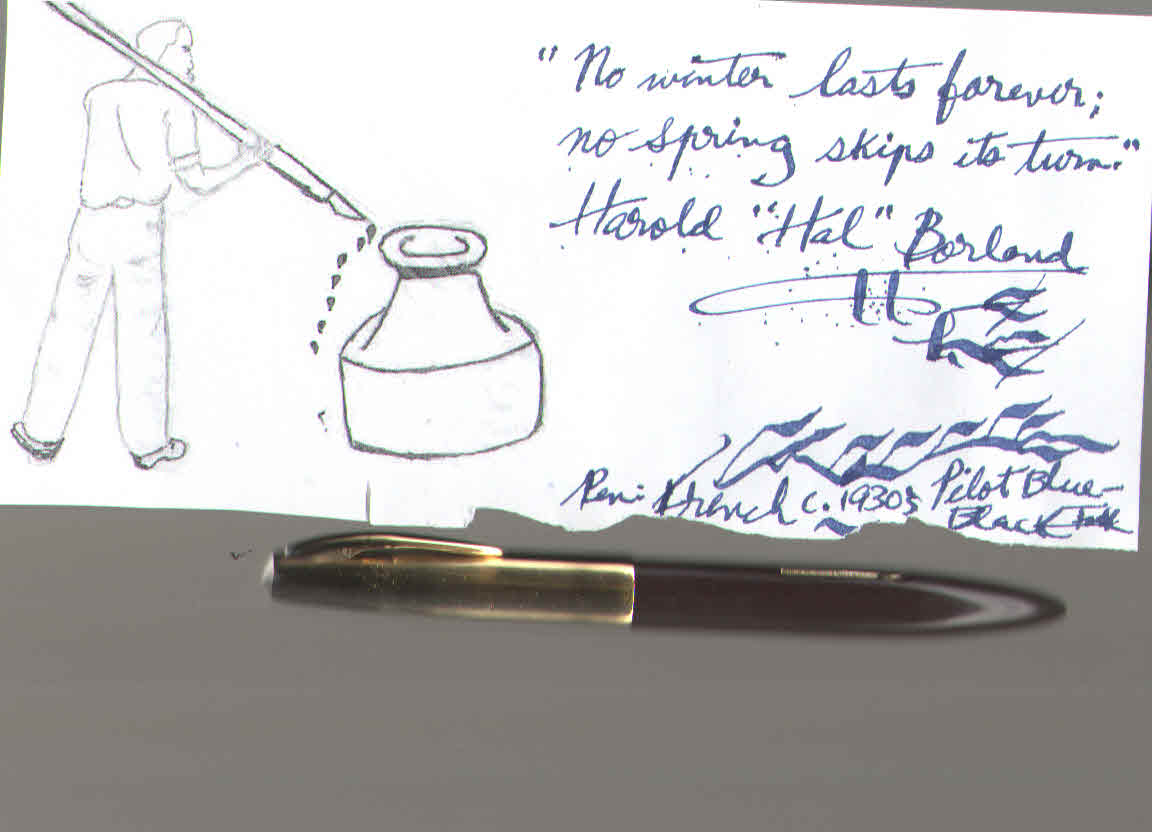 "No winter lasts forever;
no spring skips its turn."
Harold "Hal" Borland
Pen: French c. 1930s Pilot Blue-
Black Ink